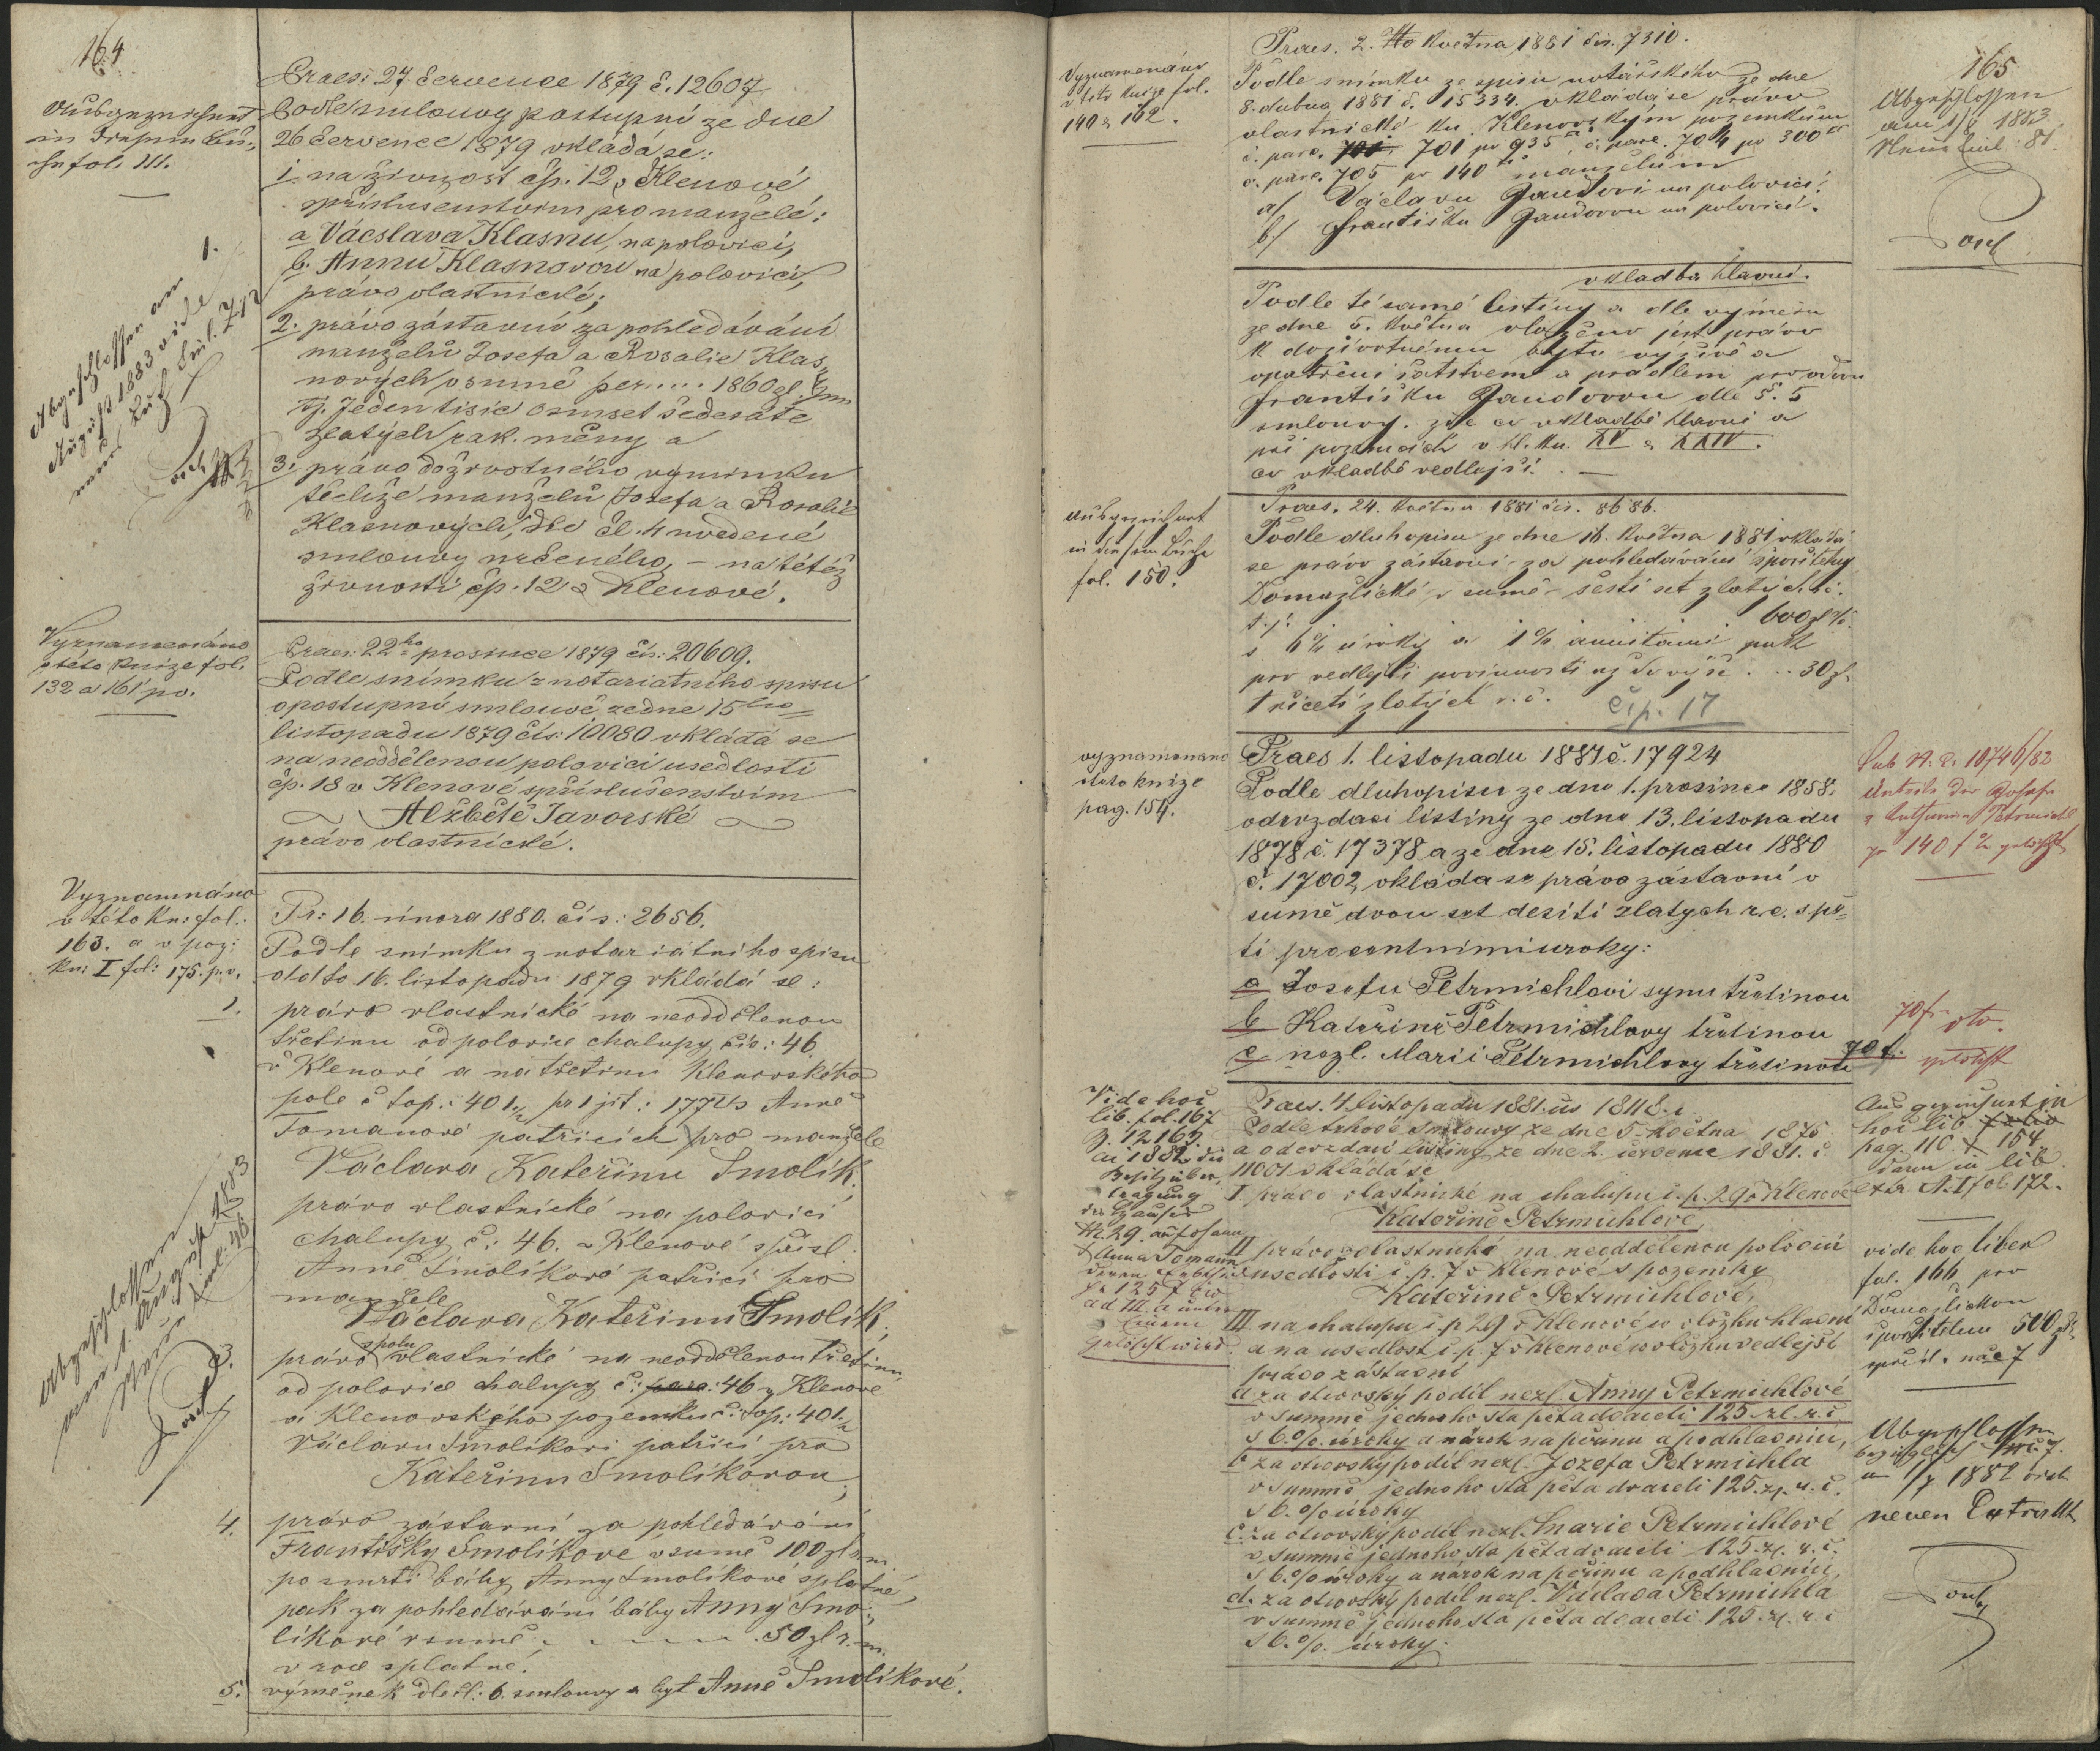 164
Praes: 27 července 1879 č. 12607
Podle smlouvy postupní ze dne
26 července 1879 vkládá se:
1. na živnost čp. 12 v Klenové
s příslušenstvím pro manžele:
a Václava Klasnu, na polovici,
b. Annu Klasnovou na polovici,
právo vlastnické;
2. právo zástavní za pohledávání
manželů Josefa a Rosalie Klas-
nových v sumě per .... 1860 zl.
tj. Jeden tisíc osmset šedesáte
zlatých rak. měny a
3. právo doživotného výminku
těchže manželů Josefa a Rosalie
Klasnových, dle čl. 4 uvedené
smlouvy určeného, – na tétéž
živnosti čp. 12 v Klenové.
fol. 111.
Abgeschlossen am 1.
August 1883 vide
Vyznamenáno
v této knize fol.
132 a 161 po.
Praes: 22ho prosince 1879 čís: 20609.
Podle snímku z notariatního spisu
o postupní smlouvě ze dne 15ho
listopadu 1879 čís: 10080 vkládá se
na neoddělenou polovici usedlosti
čp. 18 v Klenové s příslušenstvím
Alžbětě Javorské
právo vlastnické.
Vyznamnáno
v této kn: fol.:
163. a v poz:
kn: I fol: 175. p. v.
Pr: 16. února 1880. čís: 2656.
Podle snímku z notariátního spisu
ddto 16. listopadu 1879 vkládá se:
1.
právo vlastnické na neoddělenou
třetinu od polovice chalupy čís: 46
v Klenové a na třetinu Klenovského
pole č top: 401/2 pr 1 jit: Anně
Tomanové patřících pro manžele
Václava Kateřinu Smolík,
právo vlastnické na polovici
chalupy č: 46. v Klenové s přísl
Anně Smolíkové patřící pro
manžele
Václava Kateřinu Smolík;
právo spolu vlastnické na neoddělenou třetinu
od polovice chalupy č: 46 v Klenové
a Klenovského pozemku č: top: 401/2
Václavu Smolíkovi patřící pro
Kateřinu Smolíkovou;
4. právo zástavní za pohledávání
Františky Smolíkove v sumě 100 zl r. m.
po smrti báby Anny Smolíkove splatné,
pak za pohledávání báby Anny Smo-
líkové v sumě . . . . 50 zl r. m.
v roce splatné.
5. výměnek dle čl: 6. smlouvy a byt Anně Smolíkové.
Abgeschlossen
am 1. August 1883
165
Praes. 2. května 1881 čís. 7310.
Vyznamenáno
v této knize fol.
140 a 162.
Podle snímku ze spisu notářského ze dne
8. dubna 1881 č. 15334. vkládá se právo
vlastnické ku Klenovským pozemkům
č. parc. 701 pr 935, č. parc. 704 pr 300
č. parc. 705 pr 140 manželům
a/ Václavu Jandovi na polovici,
b/ Františku Jandovou na polovici.
Abgeschlossen
am 1/8 1883
vkladba hlavní.
Podle té samé listiny a dle výměru
ze dne 5. května vloženo jest právo
k doživotnému bytu výživě a
opatření šatstvem a prádlem pro vdovu
Františku Jandovou dle §. 5
smlouvy. zde co vkladbě hlavní a
při pozemcích v hl. kn. XV a XXIV.
co vkladbě vedlejší. –
Praes. 24. května 1881 čís. 8686.
fol. 150.
Podle dluhopisu ze dne 16. května 1881 vkládá
se právo zástavní za pohledávání spořitelny
Domažlické v sumě šesti set zlatých r. č.
t. j. 600 zl
s 6% úroky a 1% annitami pak
pro vedlejší povinnosti až do výše . . . 30 zl
třiceti zlatých r. č.
č. p. 17
vyznamenano
v teto knize
pag. 154.
Praes 1. listopadu 1881 č. 17924
Podle dluhopisu ze dne 1. prosince 1858,
odevzdací listiny ze dne 13. listopadu
1878 č. 17378 a ze dne 15. listopadu 1880
č. 17002, vkláda se právo zástavní v
sumě dvou set desíti zlatych r. c. s pě-
ti procentními uroky:
a Josefu Petrmichlovi synu třetinou
b Kateřině Petrmichlovy třetinou
c nezl. Marii Petrmichlovy třetinou
70 f.
gelöscht
Vide hoc
lib. fol. 167
Z. 12169.
Praes. 4. listopadu 1881. čís 18118.
Podle trhové smlouvy ze dne 5. května 1875
a odevzdací listiny ze dne 2. července 1881. č.
11001 vkládá se
I právo vlastnické na chalupu č. p. 29 v Klenové
Kateřině Petrmichlové,
II právo vlastnické na neoddělenou polovici
usedlosti č. p. 7 v Klenové s pozemky
Kateřině Petrmichlové,
III na chalupu č. p 29 v Klenové v vložku hlavní
a na usedlost č. p. 7 v Klenové v vložku vedlejší
právo zástavní
a za otcovský podíl nezl. Anny Petrmichlové
v summě jednoho sta pěta dvaceti 125. zl. r. č.
s 6. %. úroky a nárok na peřinu a podhlavnici,
b za otcovský podíl nezl. Jozefa Petrmichla
v summě jednoho sta pěta dvaceti 125. zl. r. č.
s 6. % úroky
c. za otcovský podíl nezl. Marie Petrmichlové
v summě jednoho sta pěta dvaceti 125. zl. r. č.
s 6. % úroky a nárok na peřinu a podhlavnici,
d. za otcovský podíl nezl. Václava Petrmichla
v summě jednoho sta pěta dvaceti 125. zl. r. č
s 6. %. úroky.
hoc lib.
pag. 110. f 154
vide hoc liber
fol. 166 pro
Domažlickou
spořitelnu 500 zl
Abgeschlossen
neuen Extrakt